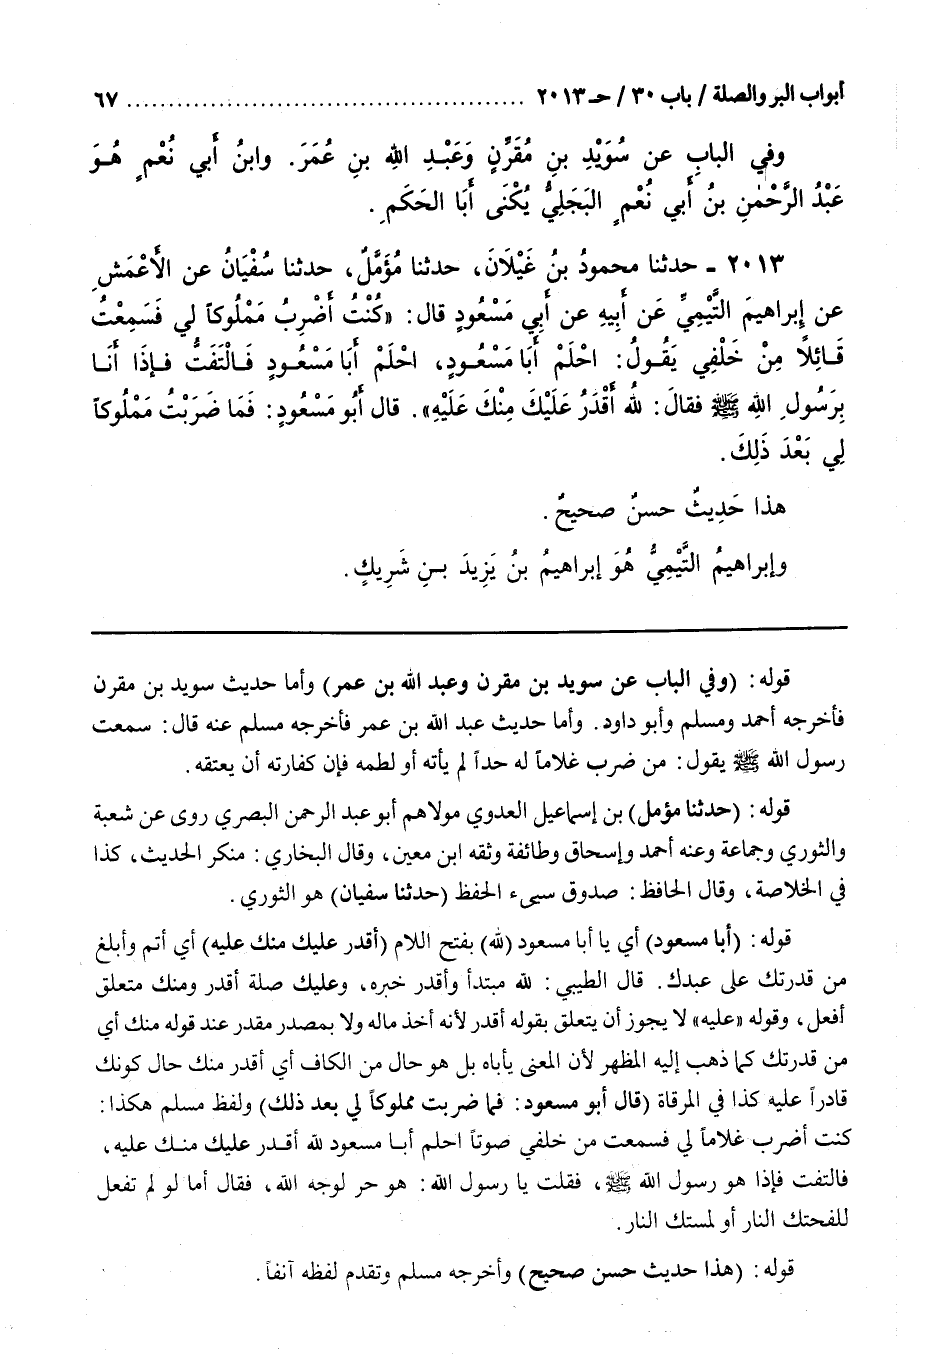 أبواب البر والصلة / باب ٣٠ / حـ ٢٠١٣ ................................................ ٦٧
وفي البابِ عن سُوَيْدِ بنِ مُقَرِّنٍ وَعَبْدِ اللهِ بنِ عُمَرَ. وابنُ أَبي نُعْمٍ هُوَ
عَبْدُ الرَّحْمٰنِ بنُ أَبي نُعْمٍ البَجَلِيُّ يُكْنَى أَبَا الحَكَمِ.
٢٠١٣ ـ حدثنا محمودُ بنُ غَيْلَانَ، حدثنا مُؤَمَّلٌ، حدثنا سُفْيَانُ عن الأَعْمَشِ
عن إبراهيمَ التَّيْمِيِّ عَن أَبيهِ عن أَبِي مَسْعُودٍ قال: «كُنْتُ أَضْرِبُ مَمْلُوكاً لي فَسَمِعْتُ
قَائِلاً مِنْ خَلْفِي يَقُولُ: احْلَمْ أَبَا مَسْعُودٍ، احْلَمْ أَبَا مَسْعُودٍ فَالْتَفَتُّ فإذَا أَنَا
بِرَسُولِ اللهِ ﷺ فقالَ: لله أَقْدَرُ عَلَيْكَ مِنْكَ عَلَيْهِ». قال أَبُو مَسْعُودٍ: فَمَا ضَرَبْتُ مَمْلُوكاً
لِي بَعْدَ ذَلِكَ.
هذا حَدِيثٌ حسنٌ صحيحٌ.
وإبراهيمُ التَّيْمِيُّ هُوَ إبراهيمُ بنُ يَزِيدَ بنِ شَرِيكٍ.
قوله: (وفي الباب عن سويد بن مقرن وعبد الله بن عمر) وأما حديث سويد بن مقرن
فأخرجه أحمد ومسلم وأبو داود. وأما حديث عبد الله بن عمر فأخرجه مسلم عنه قال: سمعت
رسول الله ﷺ يقول: من ضرب غلاماً له حداً لم يأته أو لطمه فإن كفارته أن يعتقه.
قوله: (حدثنا مؤمل) بن إسماعيل العدوي مولاهم أبو عبد الرحمن البصري روى عن شعبة
والثوري وجماعة وعنه أحمد وإسحاق وطائفة وثقه ابن معين، وقال البخاري: منكر الحديث، كذا
في الخلاصة، وقال الحافظ: صدوق سيىء الحفظ (حدثنا سفيان) هو الثوري.
قوله: (أبا مسعود) أي يا أبا مسعود (لله) بفتح اللام (أقدر عليك منك عليه) أي أتم وأبلغ
من قدرتك على عبدك. قال الطيبي: لله مبتدأ وأقدر خبره، وعليك صلة أقدر ومنك متعلق
أفعل، وقوله «عليه» لا يجوز أن يتعلق بقوله أقدر لأنه أخذ ماله ولا بمصدر مقدر عند قوله منك أي
من قدرتك كما ذهب إليه المظهر لأن المعنى يأباه بل هو حال من الكاف أي أقدر منك حال كونك
قادراً عليه كذا في المرقاة (قال أبو مسعود: فما ضربت مملوكاً لي بعد ذلك) ولفظ مسلم هكذا:
كنت أضرب غلاماً لي فسمعت من خلفي صوتاً احلم أبا مسعود لله أقدر عليك منك عليه،
فالتفت فإذا هو رسول الله ﷺ، فقلت يا رسول الله: هو حر لوجه الله، فقال أما لو لم تفعل
للفحتك النار أو لمستك النار.
قوله: (هذا حديث حسن صحيح) وأخرجه مسلم وتقدم لفظه آنفاً.